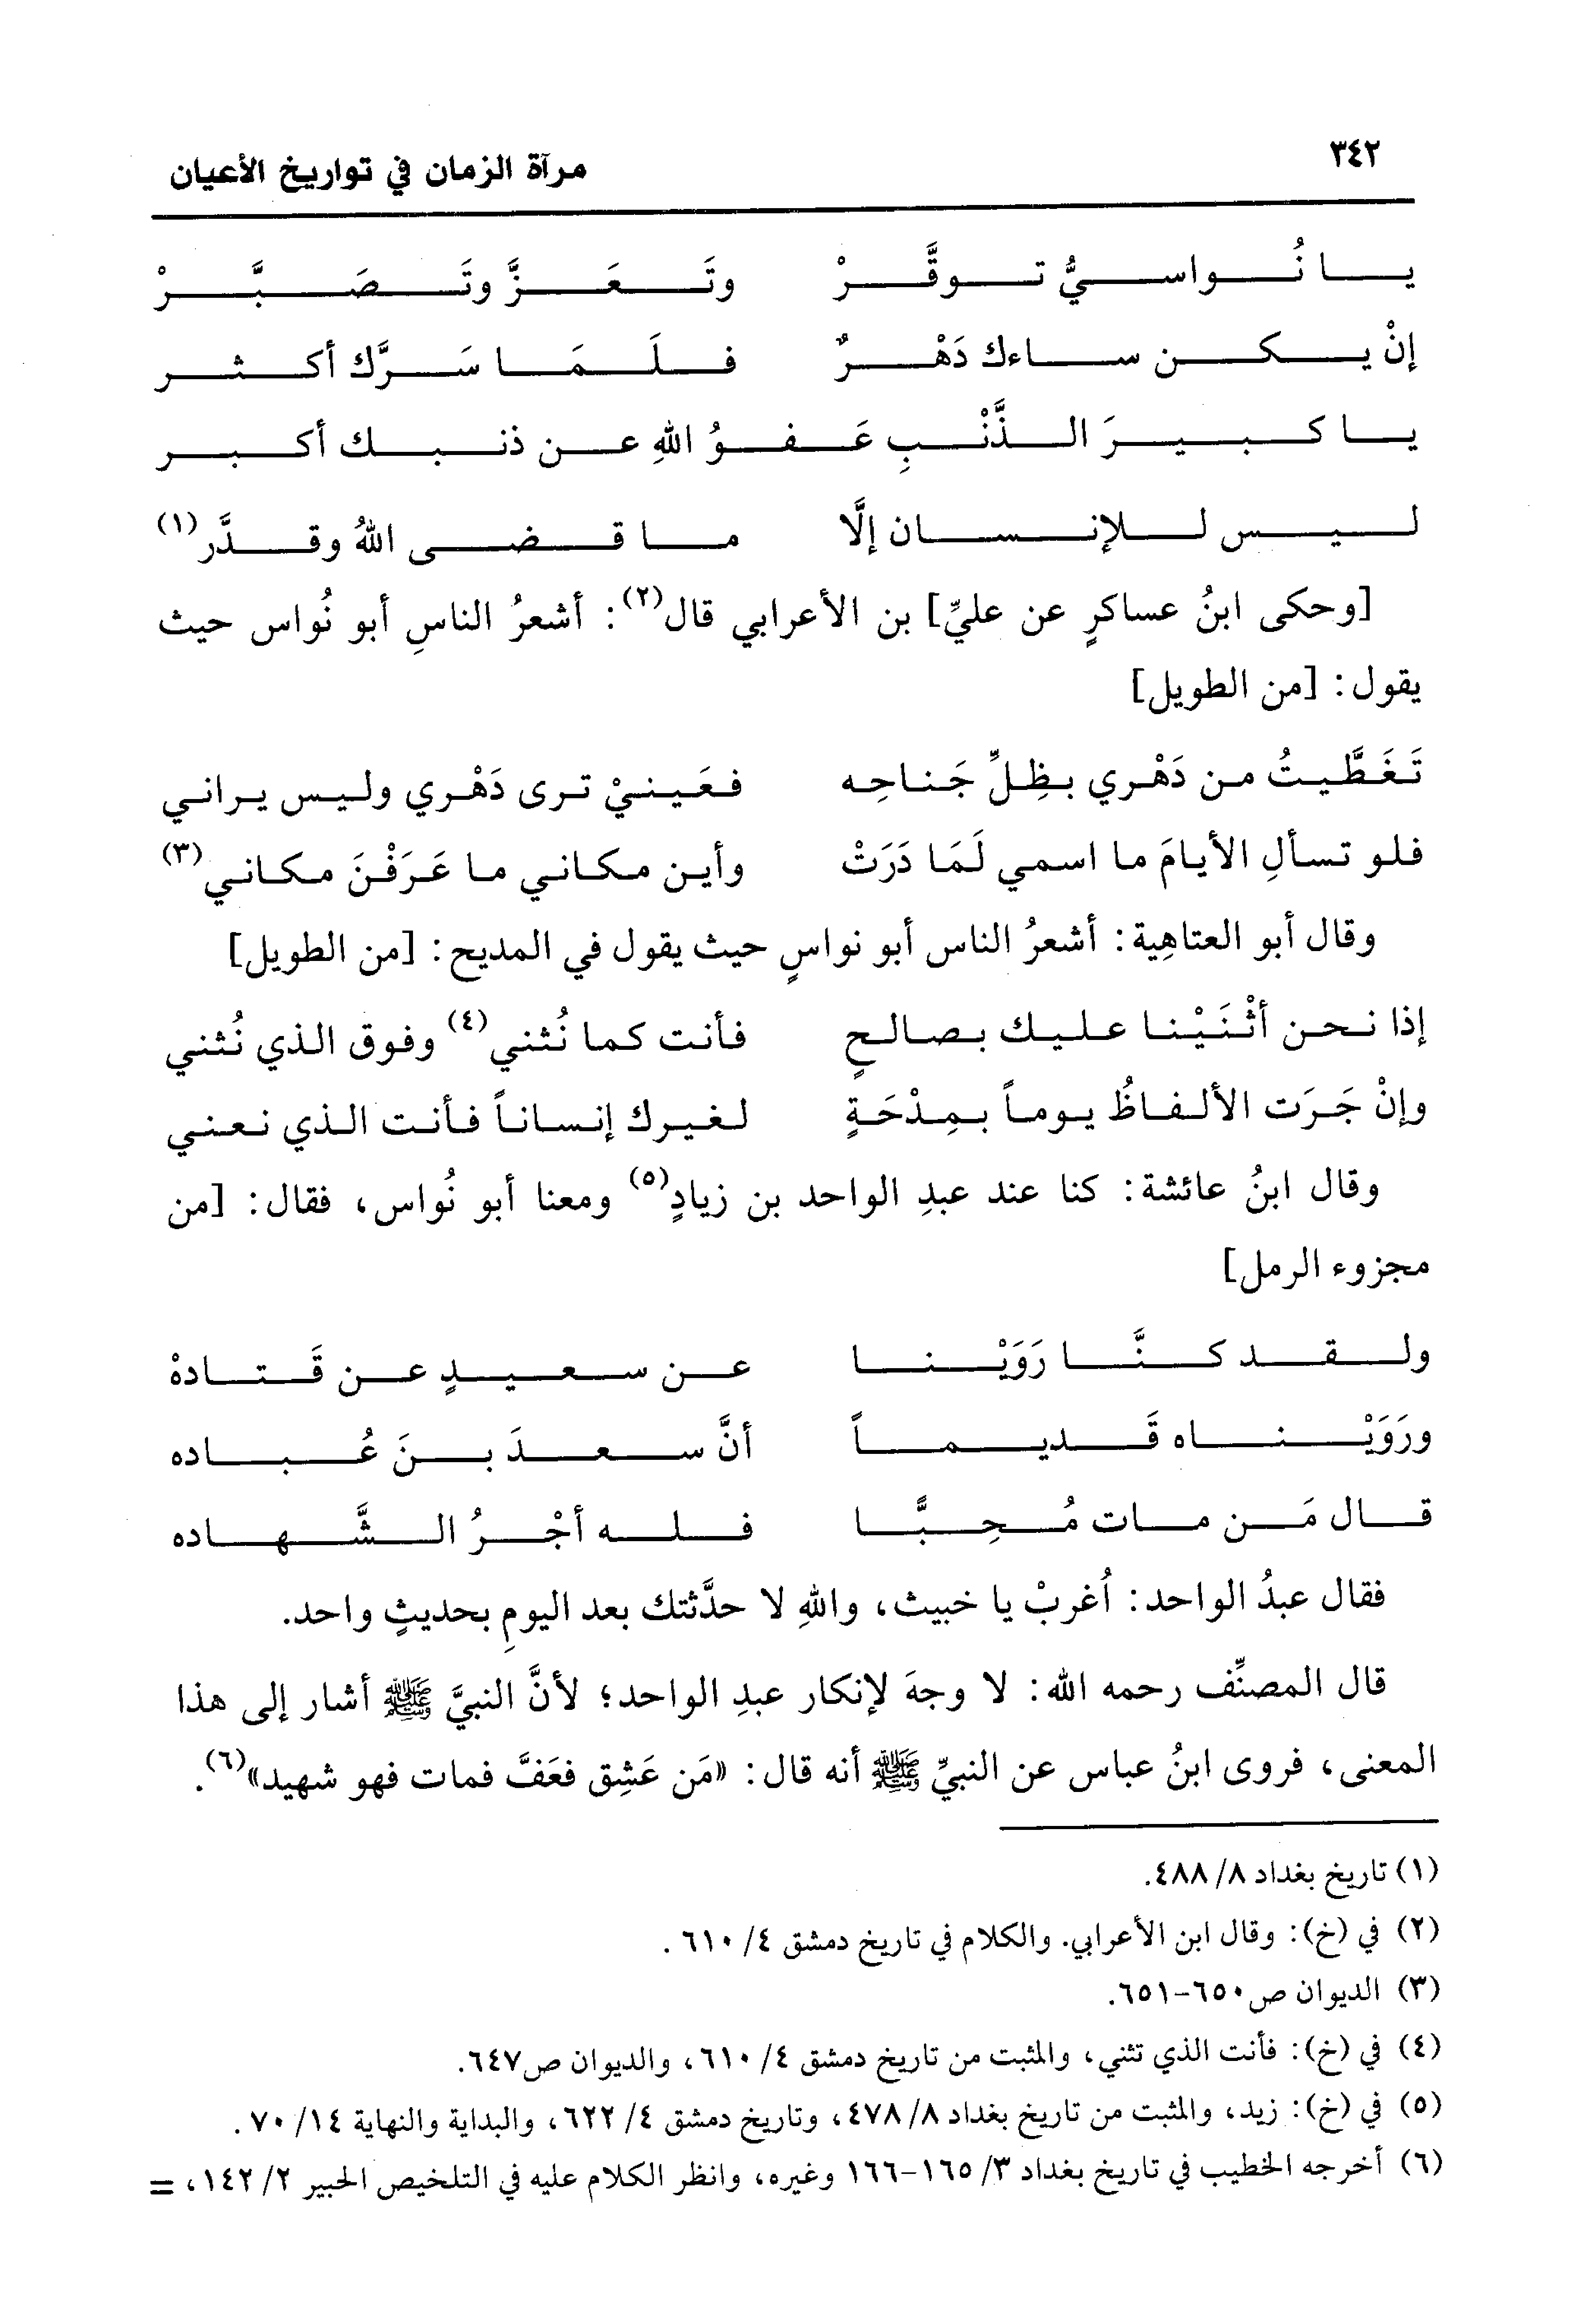 ٣٤٢
مرآة الزمان في تواريخ الأعيان
يا نُواسيُّ توقَّرْ وتَعَزَّ وتَصَبَّرْ
إنْ يكن ساءك دَهْرٌ فلَمَا سَرَّك أكثر
يا كبيرَ الذَّنْبِ عَفوُ اللهِ عن ذنبك أكبر
ليس للإنسان إلَّا ما قضى اللهُ وقدَّر(١)
[وحكى ابنُ عساكرٍ عن عليِّ] بن الأعرابي قال(٢): أشعرُ الناسِ أبو نُواس حيث
يقول: [من الطويل]
تَغَطَّيتُ من دَهْري بظِلِّ جَناحِه فعَينيْ ترى دَهْري وليس يراني
فلو تسألِ الأيامَ ما اسمي لَمَا دَرَتْ وأين مكاني ما عَرَفْنَ مكاني(٣)
وقال أبو العتاهِية: أشعرُ الناس أبو نواسٍ حيث يقول في المديح: [من الطويل]
إذا نحن أثْنَيْنا عليك بصالحٍ فأنت كما نُثني(٤) وفوق الذي نُثني
وإنْ جَرَت الألفاظُ يوماً بمِدْحَةٍ لغيرك إنساناً فأنت الذي نعني
وقال ابنُ عائشة: كنا عند عبدِ الواحد بن زيادٍ(٥) ومعنا أبو نُواس، فقال: [من
مجزوء الرمل]
ولقد كنَّا رَوَيْنا عن سعيدٍ عن قَتادهْ
ورَوَيْناه قَديماً أنَّ سعدَ بنَ عُباده
قال مَن مات مُحِبًّا فله أجْرُ الشَّهاده
فقال عبدُ الواحد: اُغربْ يا خبيث، واللهِ لا حدَّثتك بعد اليومِ بحديثٍ واحد.
قال المصنِّف رحمه الله: لا وجهَ لإنكار عبدِ الواحد؛ لأنَّ النبيَّ ﷺ أشار إلى هذا
المعنى، فروى ابنُ عباس عن النبيِّ ﷺ أنه قال: «مَن عَشِق فعَفَّ فمات فهو شهيد»(٦).
(١) تاريخ بغداد ٨/ ٤٨٨.
(٢) في (خ): وقال ابن الأعرابي. والكلام في تاريخ دمشق ٤/ ٦١٠.
(٣) الديوان ص٦٥٠-٦٥١.
(٤) في (خ): فأنت الذي تثني، والمثبت من تاريخ دمشق ٤/ ٦١٠، والديوان ص٦٤٧.
(٥) في (خ): زيد، والمثبت من تاريخ بغداد ٨/ ٤٧٨، وتاريخ دمشق ٤/ ٦٢٢، والبداية والنهاية ١٤/ ٧٠.
(٦) أخرجه الخطيب في تاريخ بغداد ٣/ ١٦٥-١٦٦ وغيره، وانظر الكلام عليه في التلخيص الحبير ٢/ ١٤٢، =